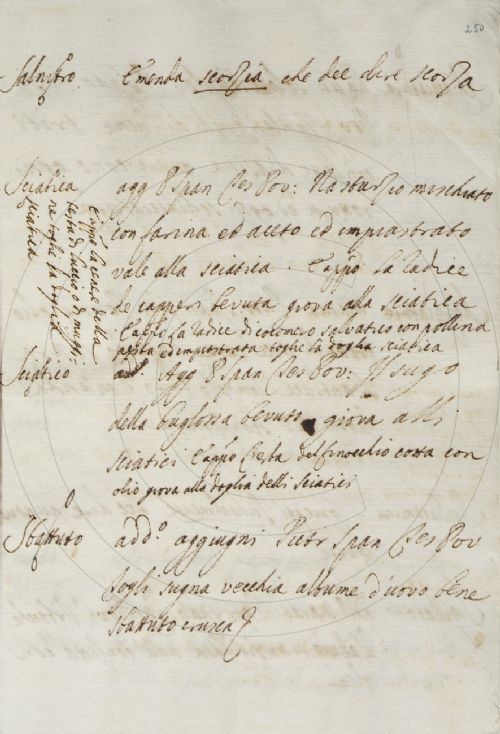 250
Salnistro. Emenda scorzia che dee dire scorza
Sciatica agg P span Tes Pov: Nasturzio mischiato
con farina ed aceto ed impiastrato
vale alla sciatica. E appo La radice
de capperi bevuta giova alla sciatica
E appo La radice di cocomero salvatico con pollina
pesta ed impiastrata toghe la doglia sciatica
E appo la cener della
testa di
ne toghe la doglia
sciatica
Sciatico Agg P span Tes Pov: Il sugo
della buglossa bevuto giova alli
sciatici E appo Cresta del finocchio cotta con
olio giova alla doglia delli sciatici
Sbattuto add.o aggiugni Pietr span Tes Pov
Togli sugna vecchia albume d'uovo bene
sbattuto crusca